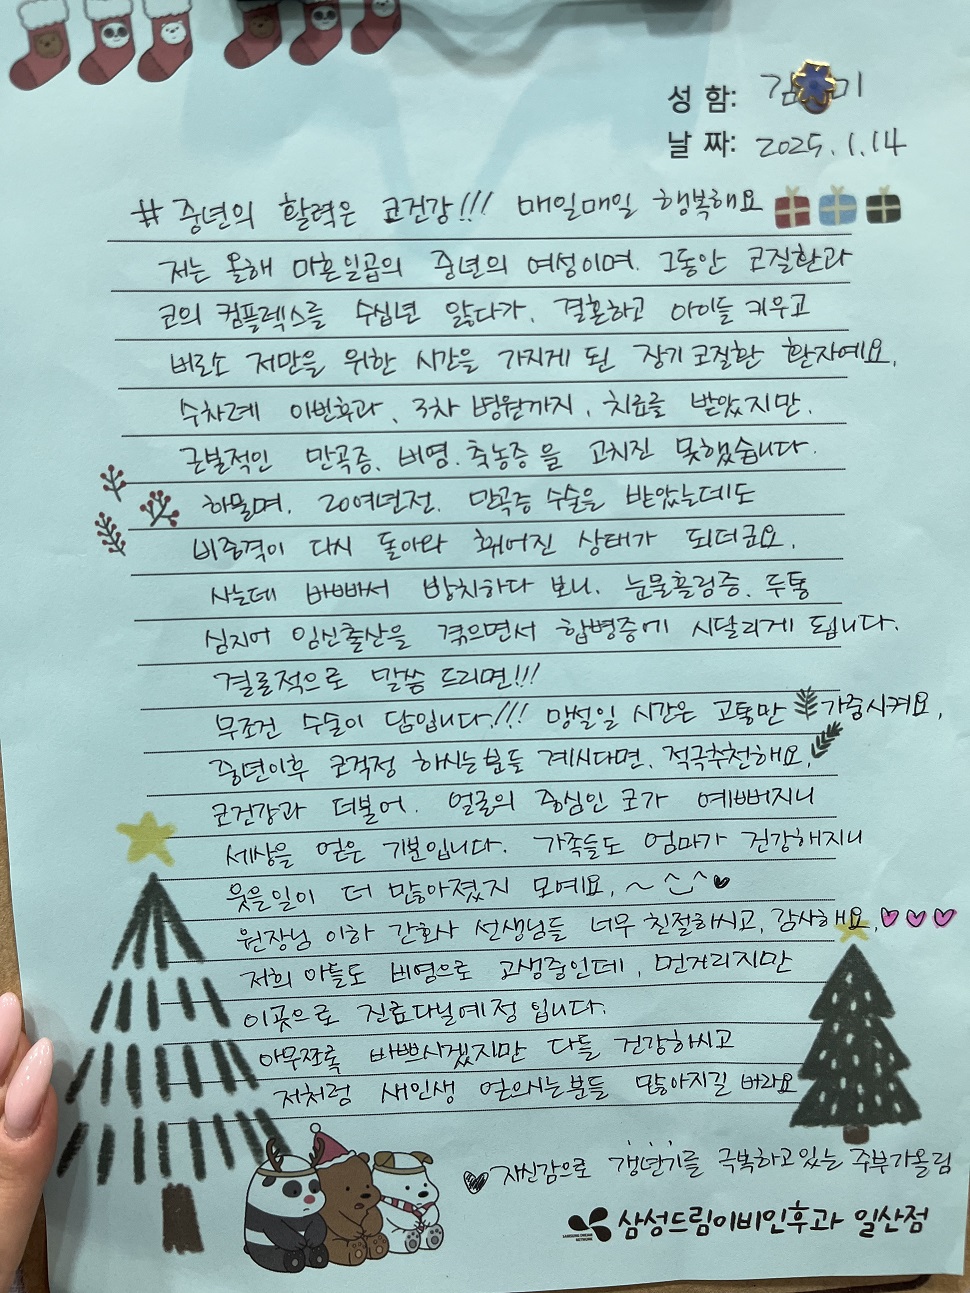 성 함: 김 미
날 짜: 2025. 1. 14
# 중년의 활력은 코건강!!! 매일매일 행복해요
저는 올해 마흔일곱의 중년의 여성이며. 그동안 코질환과
코의 컴플렉스를 수십년 앓다가. 결혼하고 아이들 키우고
비로소 저만을 위한 시간을 가지게 된 장기 코질환 환자예요.
수차례 이빈후과, 3차 병원까지, 치료를 받았지만.
근본적인 만곡증, 비염. 축농증을 고치진 못했습니다.
하물며. 20여년전. 만곡증 수술을 받았는데도
비중격이 다시 돌아와 휘어진 상태가 되더군요.
사는데 바빠서 방치하다 보니. 눈물흘림증. 두통
심지어 임신출산을 겪으면서 합병증에 시달리게 됩니다.
결론적으로 말씀 드리면!!!
무조건 수술이 답입니다!!! 망설일 시간은 고통만 가중시켜요.
중년이후 코걱정 하시는분들 계시다면. 적극추천해요.
코건강과 더불어. 얼굴의 중심인 코가 예뻐지니
세상을 얻은 기분입니다. 가족들도 엄마가 건강해지니
웃을일이 더 많아졌지 모예요. ~ ^-^ ♥
원장님 이하 간호사 선생님들 너무 친절하시고, 감사해요. ♡♡♡
저희 아들도 비염으로 고생중인데, 먼거리지만
이곳으로 진료다닐예정 입니다.
아무쪼록 바쁘시겠지만 다들 건강하시고
저처럼 새인생 얻으시는분들 많아지길 바라요
♥ 자신감으로 갱년기를 극복하고있는 주부가올림
삼성드림이비인후과 일산점